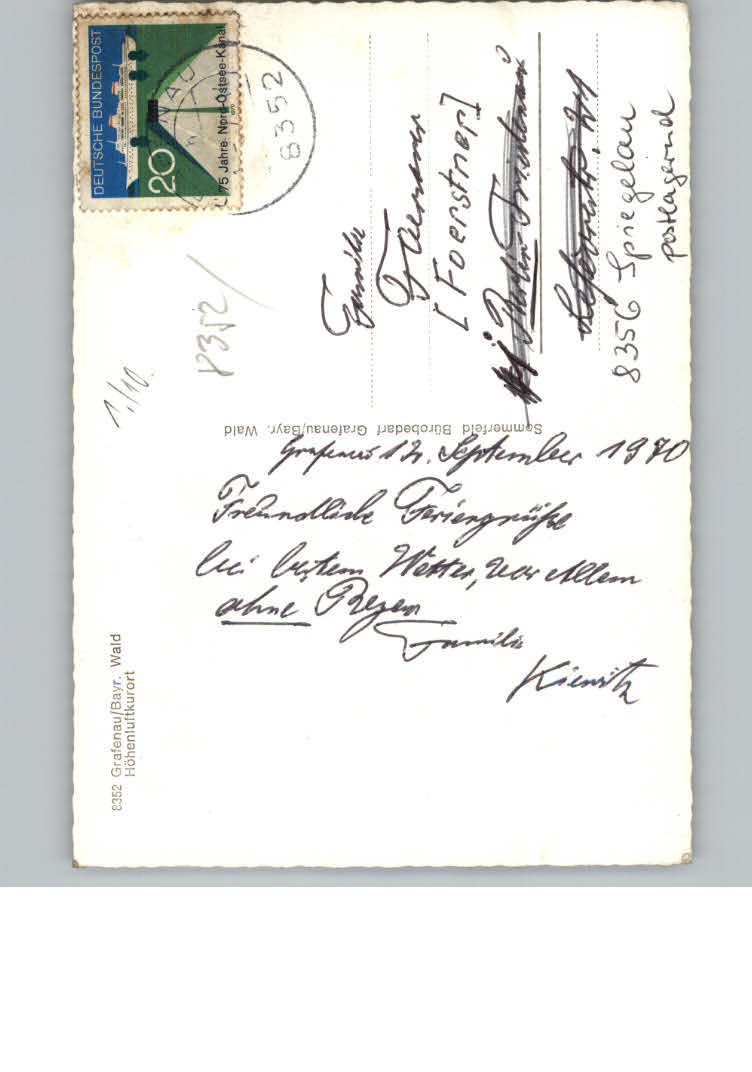 DEUTSCHE BUNDESPOST
20
75 Jahre Nord-Ostsee-Kanal
8352
8352/
1./10.
Familie
[Foerstner]
8356 Spiegelau
postlagernd
Sommerfeld Bürobedarf Grafenau/Bayr. Wald
Grafenau 12. September 1970
Freundliche Feriengrüße
bei bestem Wetter, vor Allem
ohne Regen
Familie
Kienitz
8352 Grafenau/Bayr. Wald
Höhenluftkurort